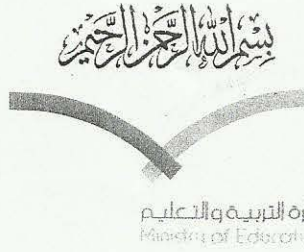 بسم الله الرحمن الرحيم
التربية والتعليم
Ministry of